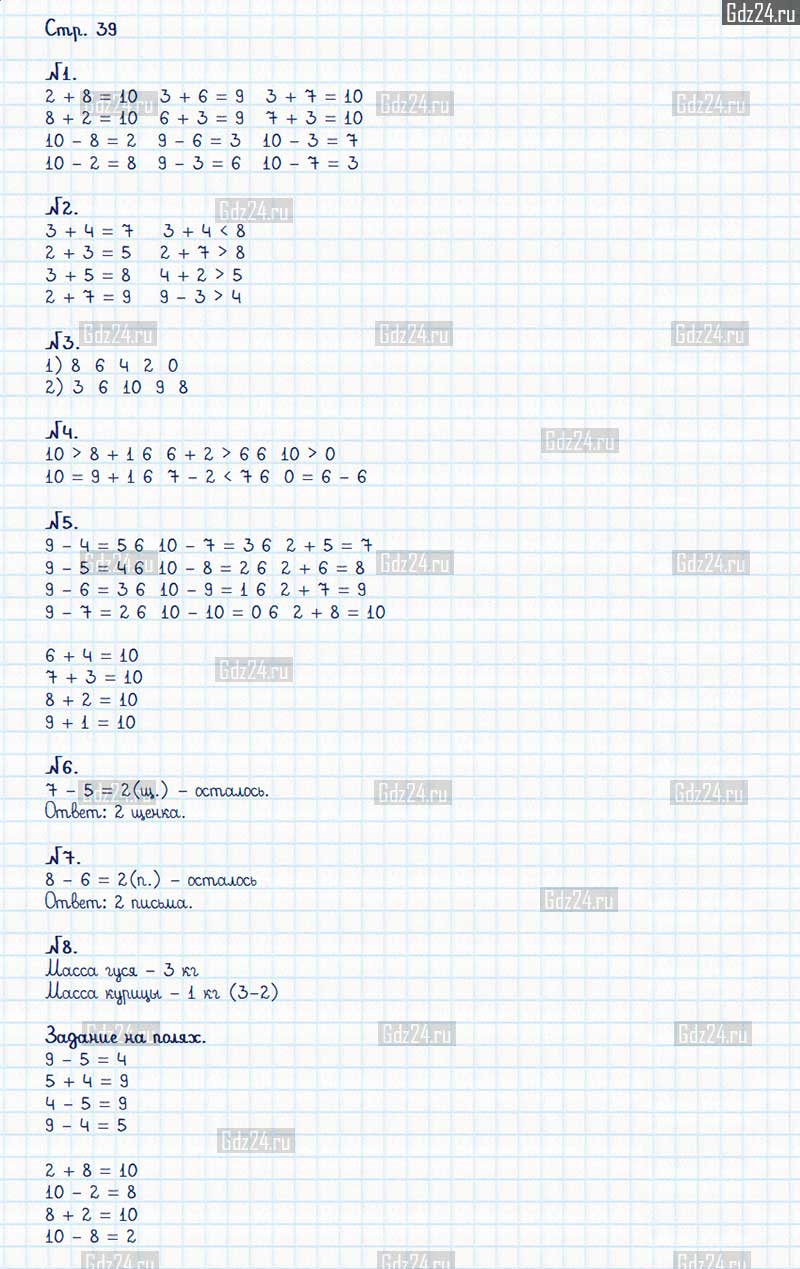 Gdz24.ru
Стр. 39
№1.
2 + 8 = 10 3 + 6 = 9 3 + 7 = 10
8 + 2 = 10 6 + 3 = 9 7 + 3 = 10
10 - 8 = 2 9 - 6 = 3 10 - 3 = 7
10 - 2 = 8 9 - 3 = 6 10 - 7 = 3
№2.
3 + 4 = 7 3 + 4 < 8
2 + 3 = 5 2 + 7 > 8
3 + 5 = 8 4 + 2 > 5
2 + 7 = 9 9 - 3 > 4
№3.
1) 8 6 4 2 0
2) 3 6 10 9 8
№4.
10 > 8 + 1 6 6 + 2 > 6 6 10 > 0
10 = 9 + 1 6 7 - 2 < 7 6 0 = 6 - 6
№5.
9 - 4 = 5 6 10 - 7 = 3 6 2 + 5 = 7
9 - 5 = 4 6 10 - 8 = 2 6 2 + 6 = 8
9 - 6 = 3 6 10 - 9 = 1 6 2 + 7 = 9
9 - 7 = 2 6 10 - 10 = 0 6 2 + 8 = 10
6 + 4 = 10
7 + 3 = 10
8 + 2 = 10
9 + 1 = 10
№6.
7 - 5 = 2(щ.) - осталось.
Ответ: 2 щенка.
№7.
8 - 6 = 2(п.) - осталось
Ответ: 2 письма.
№8.
Масса гуся - 3 кг
Масса курицы - 1 кг (3-2)
Задание на полях.
9 - 5 = 4
5 + 4 = 9
4 - 5 = 9
9 - 4 = 5
2 + 8 = 10
10 - 2 = 8
8 + 2 = 10
10 - 8 = 2